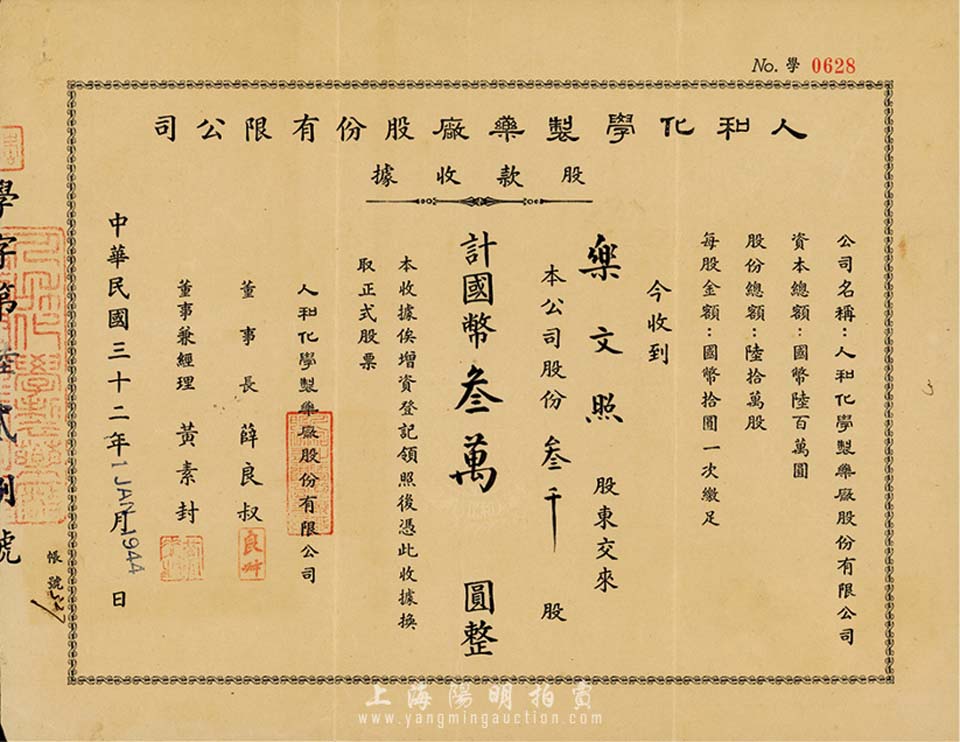 No. 學 0628
人和化學製藥廠股份有限公司
股款收據
公司名稱：人和化學製藥廠股份有限公司
資本總額：國幣陸百萬圓
股份總額：陸拾萬股
每股金額：國幣拾圓一次繳足
今收到
樂文照 股東交來
本公司股份叁千股
計國幣叁萬圓整
本收據俟增資登記領照後憑此收據換
取正式股票
人和化學製藥廠股份有限公司
董事長 薛良叔
良叔
董事兼經理 黃素封
中華民國三十二年 月 日
1 JAN 1944
帳號
學字第陸貳捌號
上海陽明拍賣
www.yangmingauction.com